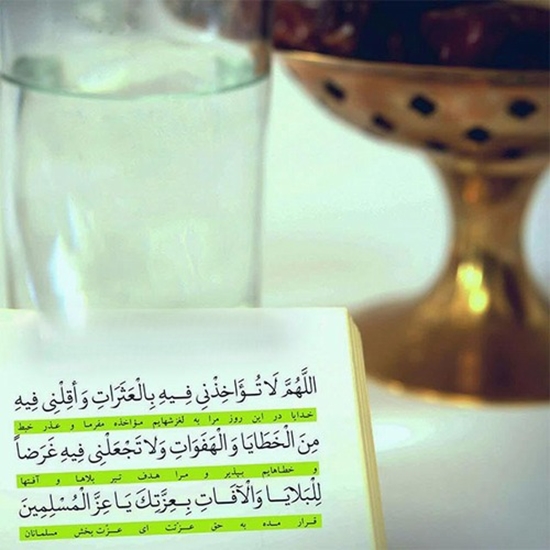 اللَّهُمَّ لَا تُؤَاخِذْنِي فِيهِ بِالْعَثَرَاتِ وَ أَقِلْنِي فِيهِ
خدایا در این روز مرا به لغزشهایم مؤاخذه مفرما و عذر خبط
مِنَ الْخَطَايَا وَ الْهَفَوَاتِ وَ لَا تَجْعَلْنِي فِيهِ غَرَضاً
و خطاهایم بپذیر و مرا هدف تیر بلاها و آفتها
لِلْبَلَايَا وَ الْآفَاتِ بِعِزَّتِكَ يَا عِزَّ الْمُسْلِمِينَ
قرار مده به حق عزّتت ای عزّت بخش مسلمانان